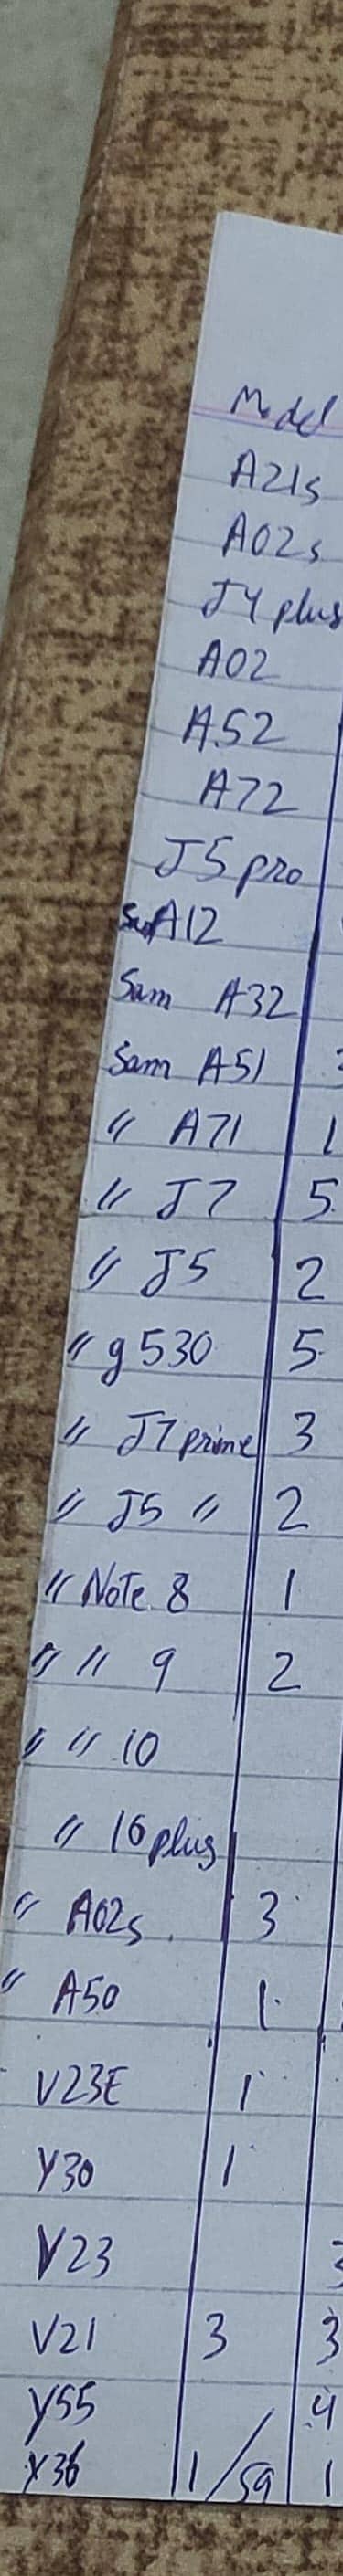 Model
A21s
A02s
J4 plus
A02
A52
A72
J5 pro
A12
Sam A32
Sam A51
" A71 1
" J7 5
" J5 2
" g530 5
" J7 prime 3
" J5 " 2
" Note 8 1
" " 9 2
" " 10
" 10 plus
" A02s 3
" A50 1
V23E 1
Y30 1
V23
V21 3 3
Y55 4
Y36 1/59 1